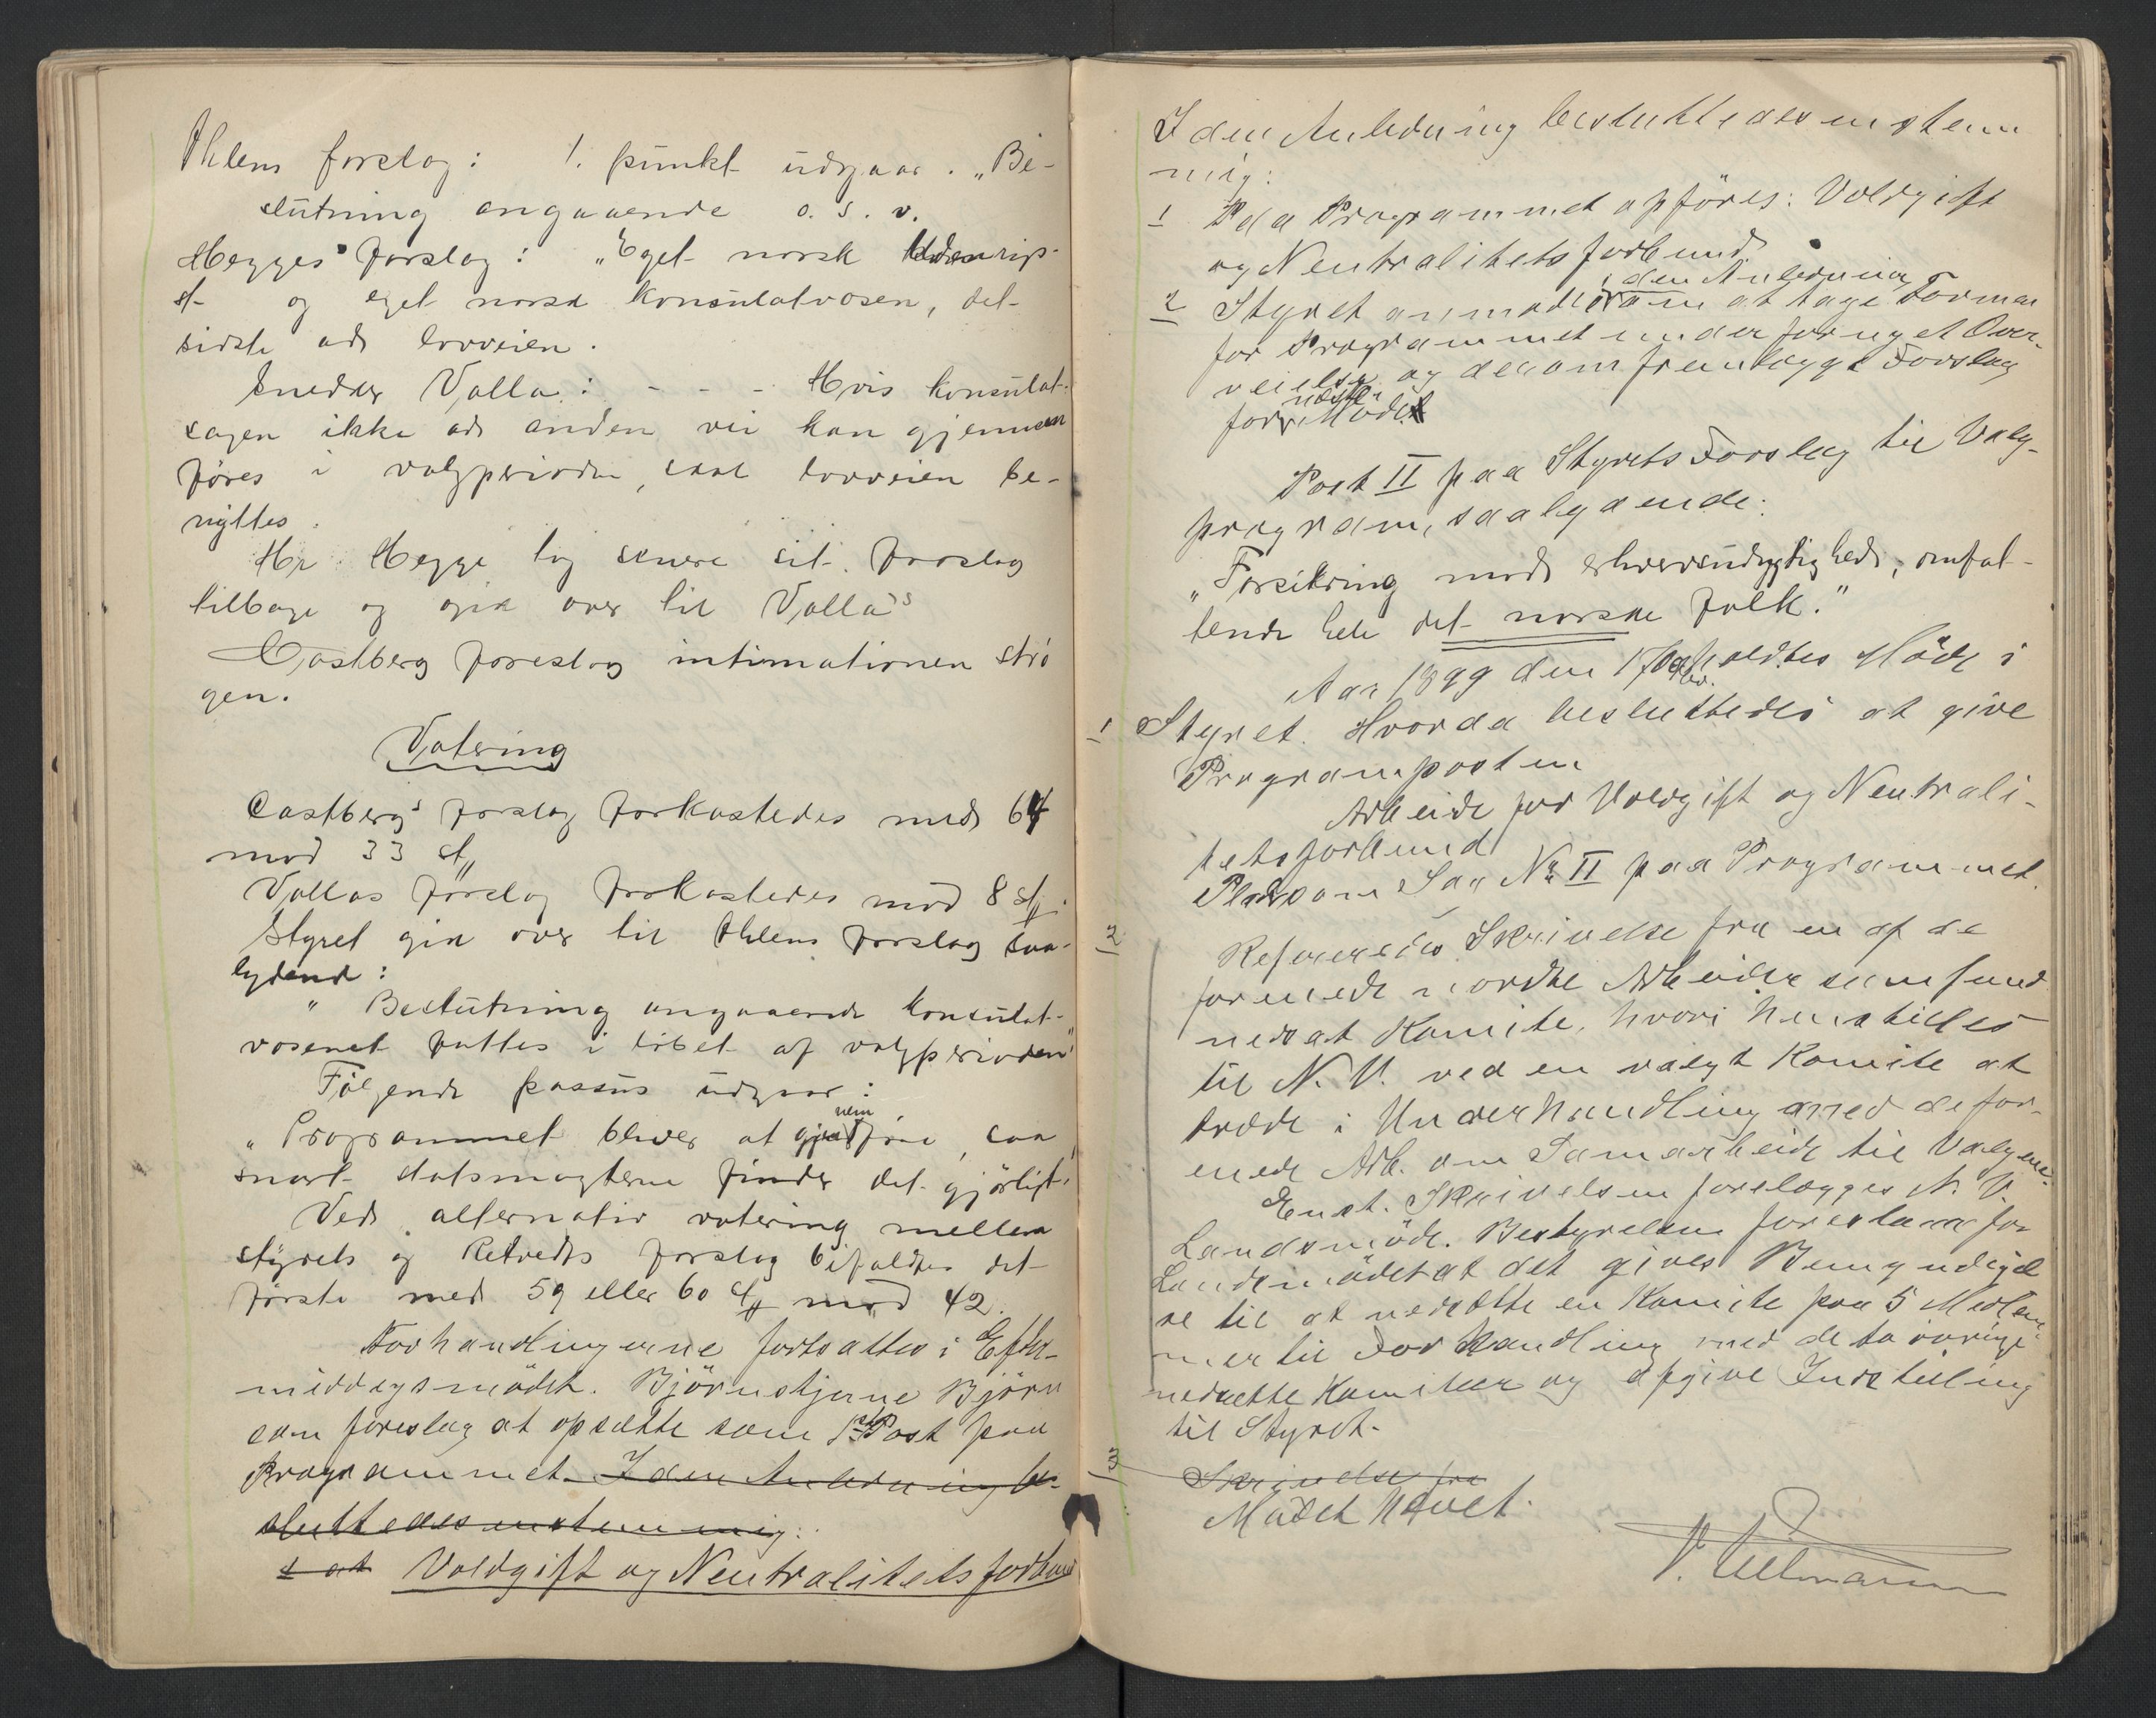 Ihlens forslag: 1. punkt udgaar. „Be-
slutning angaaende o. s. v.
Hegges forslag: „Eget norsk udenrigs-
st- og eget norsk konsulatvæsen, det
sidste ad lovveien.
Sneder Valla: - - - Hvis konsulat-
sagen ikke ad anden vei kan gjennem
føres i valgperioden, skal lovveien be-
nyttes.
Hr Hegge tog senere sit forslag
tilbage og gik over til Vallas
Castberg foreslog intimationen strø
gen.
Votering
Castbergs forslag forkastedes med 64
mod 33 st
Vallas forslag forkastedes mod 8 st.
Styret gik over til Ihlens forslag saa-
lydende:
" Beslutning angaaende konsulat-
væsenet fattes i løbet af valgperioden"
Følgende passus udgaar:
„Programmet bliver at gjennemføre, saa
snart statsmagterne finder det gjørligt.
Ved alternativ votering mellem
styrets og Retvedts forslag bifaldtes det
første med 59 eller 60 st mod 42.
Forhandlingerne fortsattes i Efter-
middagsmødet. Bjørnstjerne Bjørn
son foreslog at opsætte som 1ste Post paa
Programmet. I den Anledning be-
sluttedes enstemmig:
1 at Voldgift og Neutralitetsforbund
I den Anledning besluttedes enstem
mig:
1 Paa Programmet opføres: Voldgift
og Neutralitetsforbund
2 Styret anmodes i den Anledning om at tage Formen
for Programmet under fornyet Over-
veielse og derom fremlægge Forslag
for næste Møde
Post II paa Styrets Forslag til Valg-
program, saalydende:
„Forsikring mod erhvervsudygtighed, omfat-
tende hele det norske folk."
Aar 1899 den 17 holdtes Møde i
1 Styret. Hvorda besluttedes at give
Programposten
Arbeide for Voldgift og Neutrali-
tetsforbund
Plads som Sag No II paa Programmet.
2 Refereredes Skrivelse fra en af de
forenede norske Arbeidersamfund
nedsat Komite, hvori henstilles
til N. V. ved en valgt Komite at
træde i Underhandling med de for-
enede Arb. om Samarbeide til Valgene.
Enst. Skrivelsen forelægges N. V.
Landsmøde. Bestyrelsen foreslaar for
Landsmødet at det gives Bemyndigel
se til at nedsætte en Komite paa 5 Medlem-
mer til Forhandling med de to øvrige
nedsatte Komiteer og afgive Indstilling
til Styret.
3 Skrivelse fra
Mødet hævet.
V. Ullmann